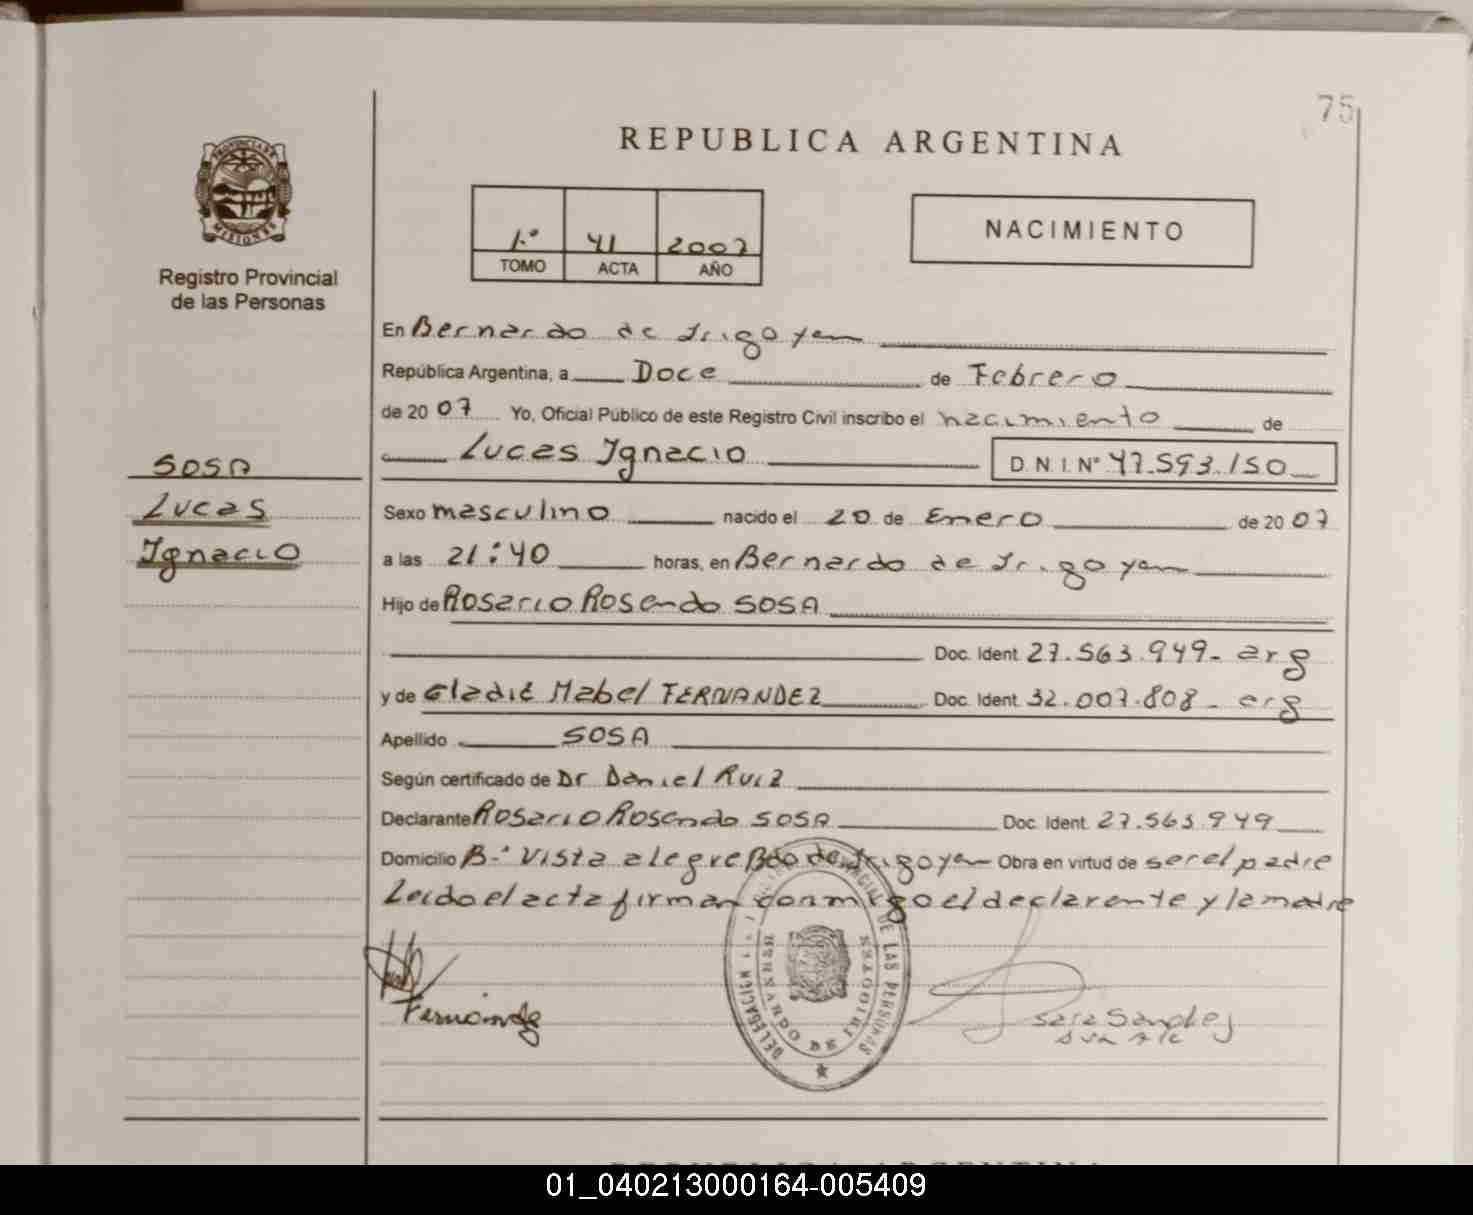 75
REPUBLICA ARGENTINA
PROVINCIA DE
MISIONES
Registro Provincial
de las Personas
1.º 41 2007
TOMO ACTA AÑO
NACIMIENTO
En Bernardo de Irigoyen
República Argentina, a Doce de Febrero
de 20 07 Yo, Oficial Público de este Registro Civil inscribo el nacimiento de
Lucas Ignacio D.N.I.Nº 47.593.150
SOSA
Lucas
Ignacio
Sexo masculino nacido el 20 de Enero de 20 07
a las 21:40 horas, en Bernardo de Irigoyen
Hijo de Rosario Rosendo SOSA
Doc. Ident. 27.563.949- arg
y de Gladis Mabel FERNANDEZ Doc. Ident. 32.007.808- arg
Apellido SOSA
Según certificado de Dr Daniel Ruiz
Declarante Rosario Rosendo SOSA Doc. Ident. 27.563.949
Domicilio B-º Vista alegre Bdo de Irigoyen Obra en virtud de ser el padre
Leido el acta firman conmigo el declarante y la madre
DE LAS PERSONAS
BERNARDO DE IRIGOYEN
REPUBLICA ARGENTINA
01_040213000164-005409